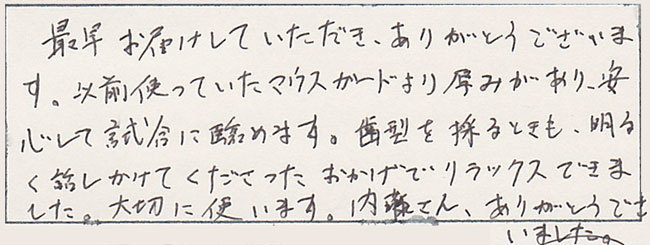 最早お届けしていただき、ありがとうございま
す。以前使っていたマウスガードより厚みがあり、安
心して試合に臨めます。歯型を採るときも、明る
く話しかけてくださったおかげでリラックスできま
した。大切に使います。内藤さん、ありがとうござ
いました。